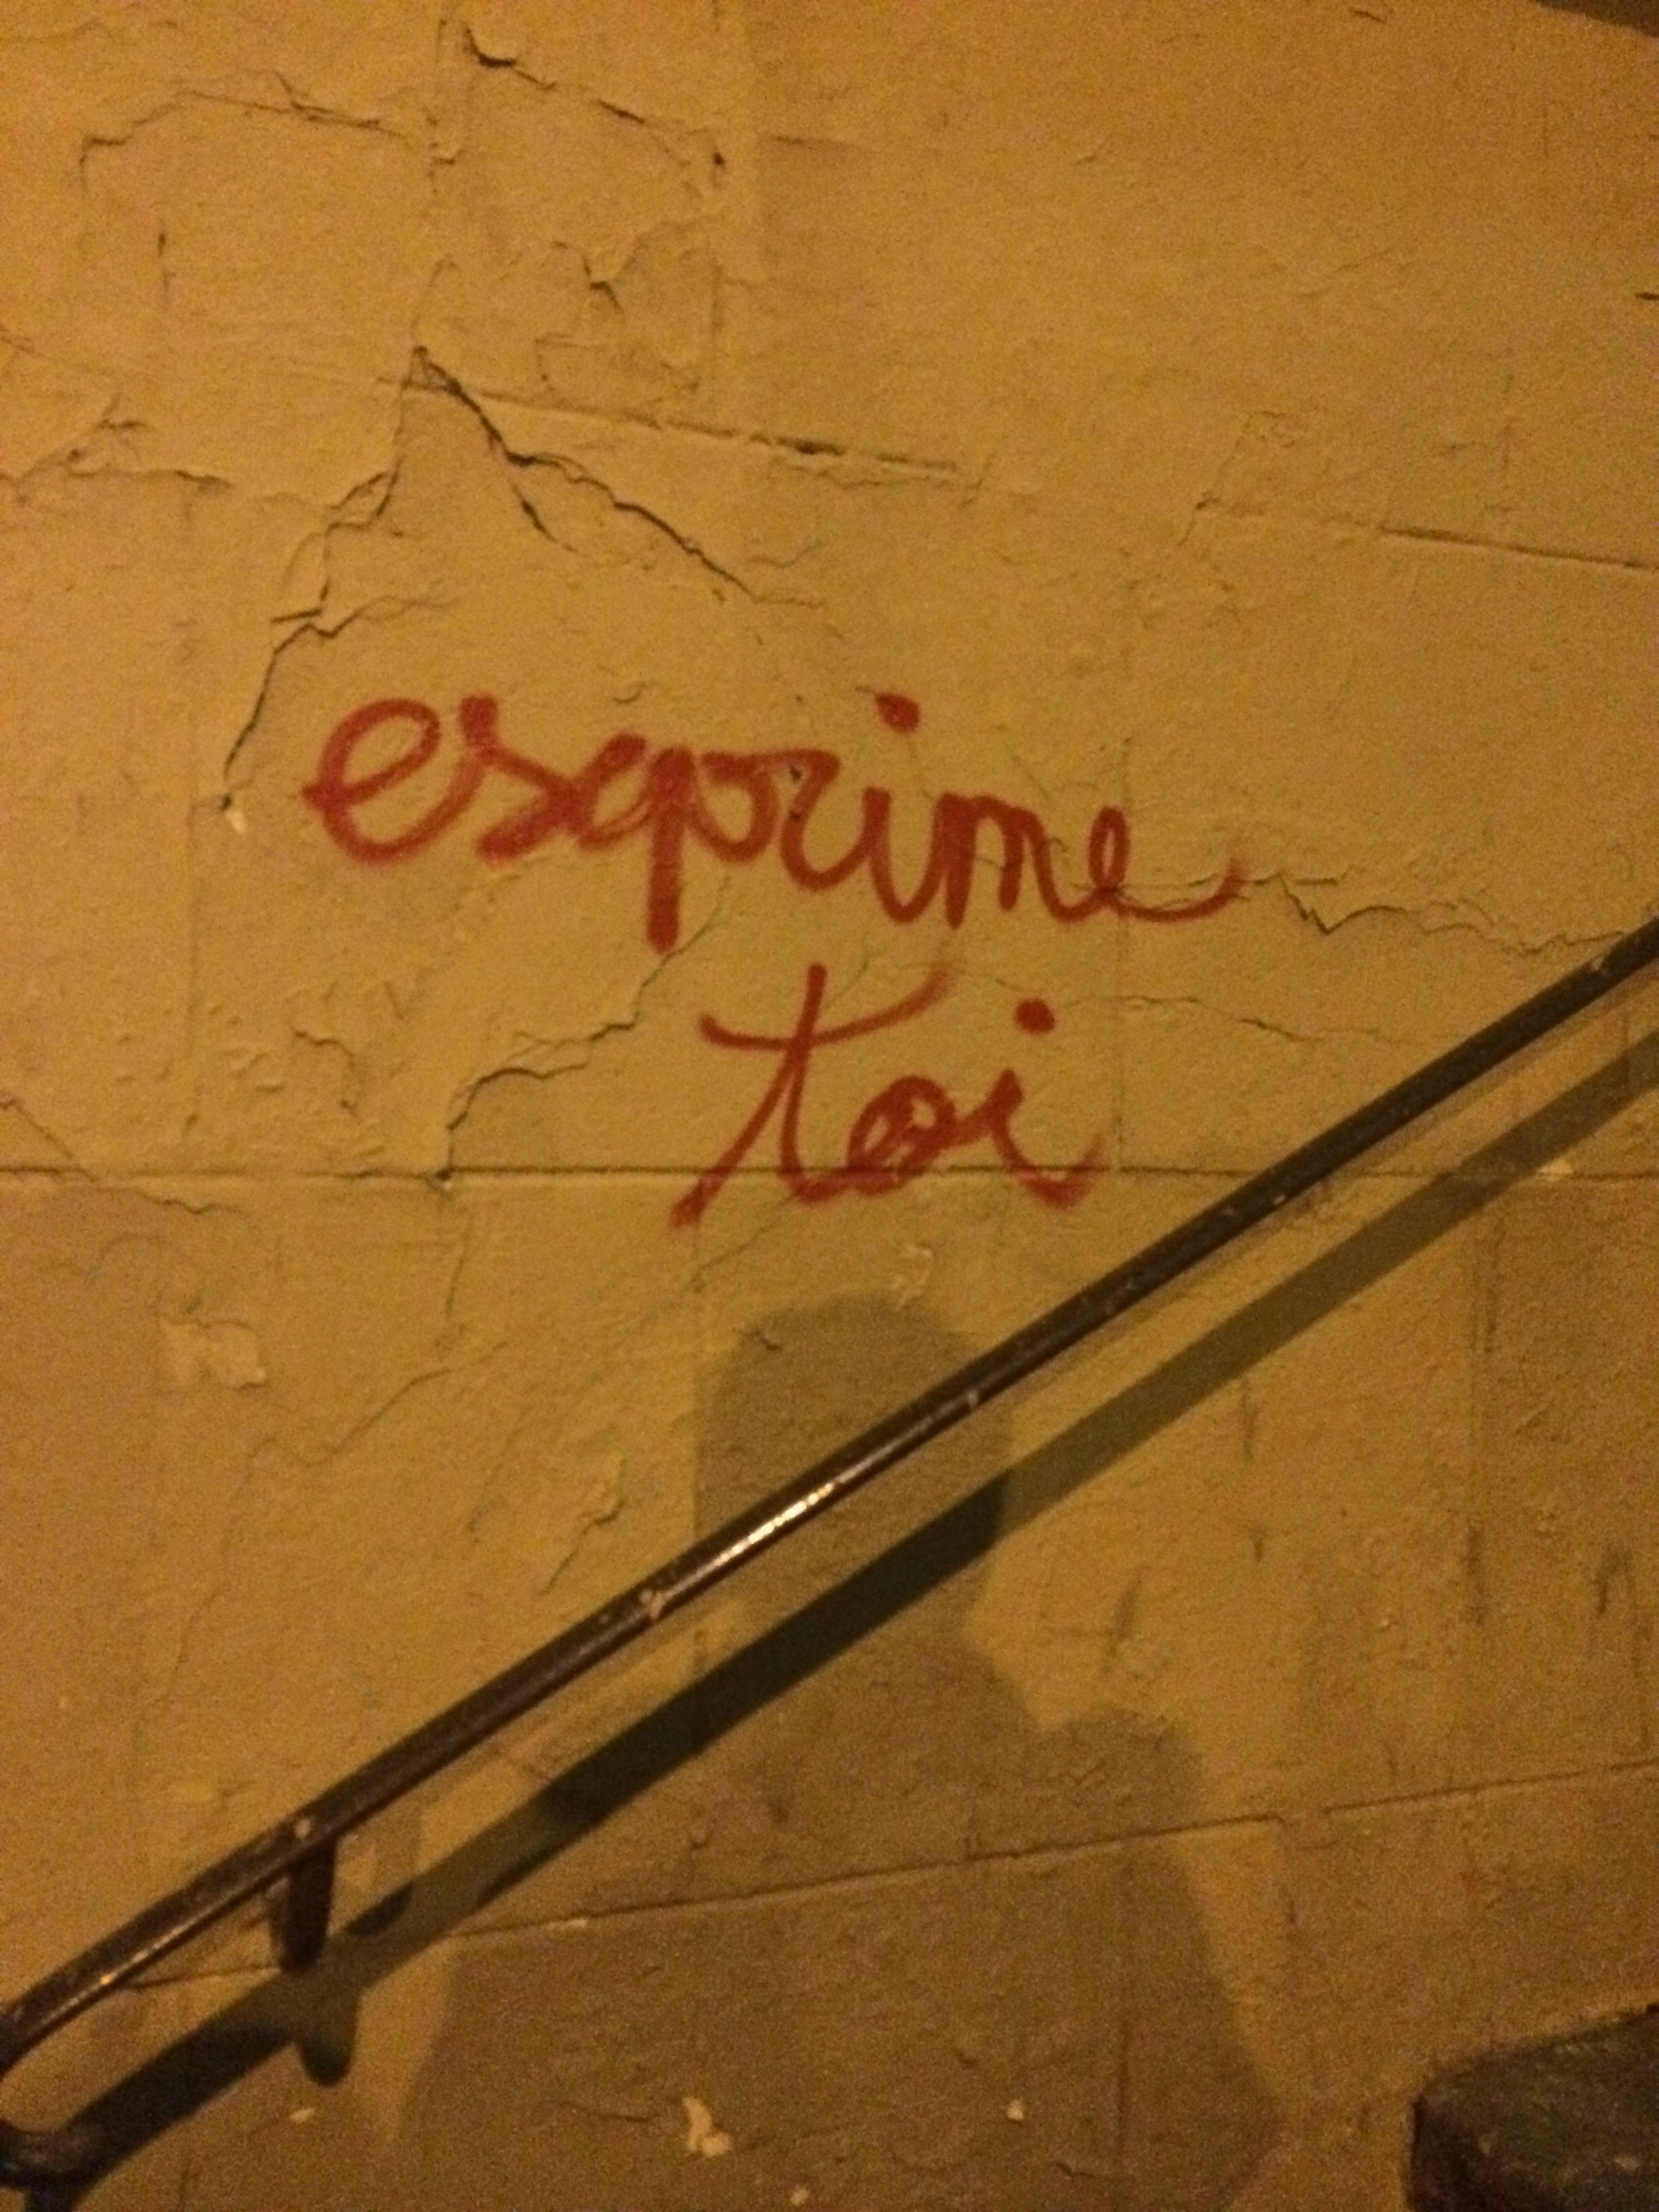 esprime
toi